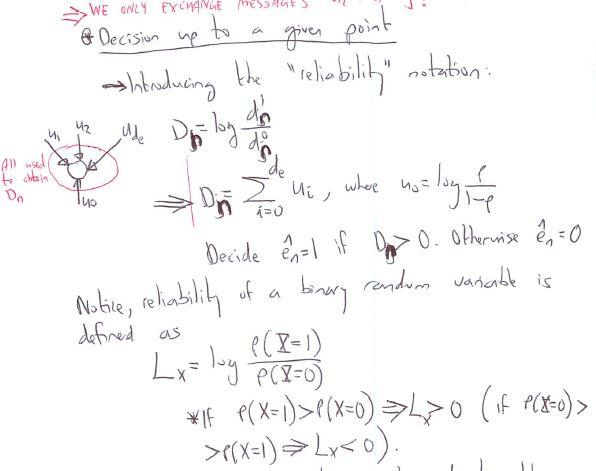 ⇒ WE ONLY EXCHANGE MESSAGES
* Decision up to a given point
→ Introducing the "reliability" notation:
u₁ u₂ u_de u₀
All used to obtain Dn
Dn = log d¹n / d⁰n
⇒ Dn = Σ_{i=0}^{de} ui, where u₀ = log ρ/(1-ρ)
Decide ên=1 if Dn > 0. Otherwise ên=0
Notice, reliability of a binary random variable is
defined as
Lx = log ρ(X=1) / ρ(X=0)
*If ρ(X=1)>ρ(X=0) ⇒ Lx > 0 (if ρ(X=0)>
>ρ(X=1) ⇒ Lx < 0).